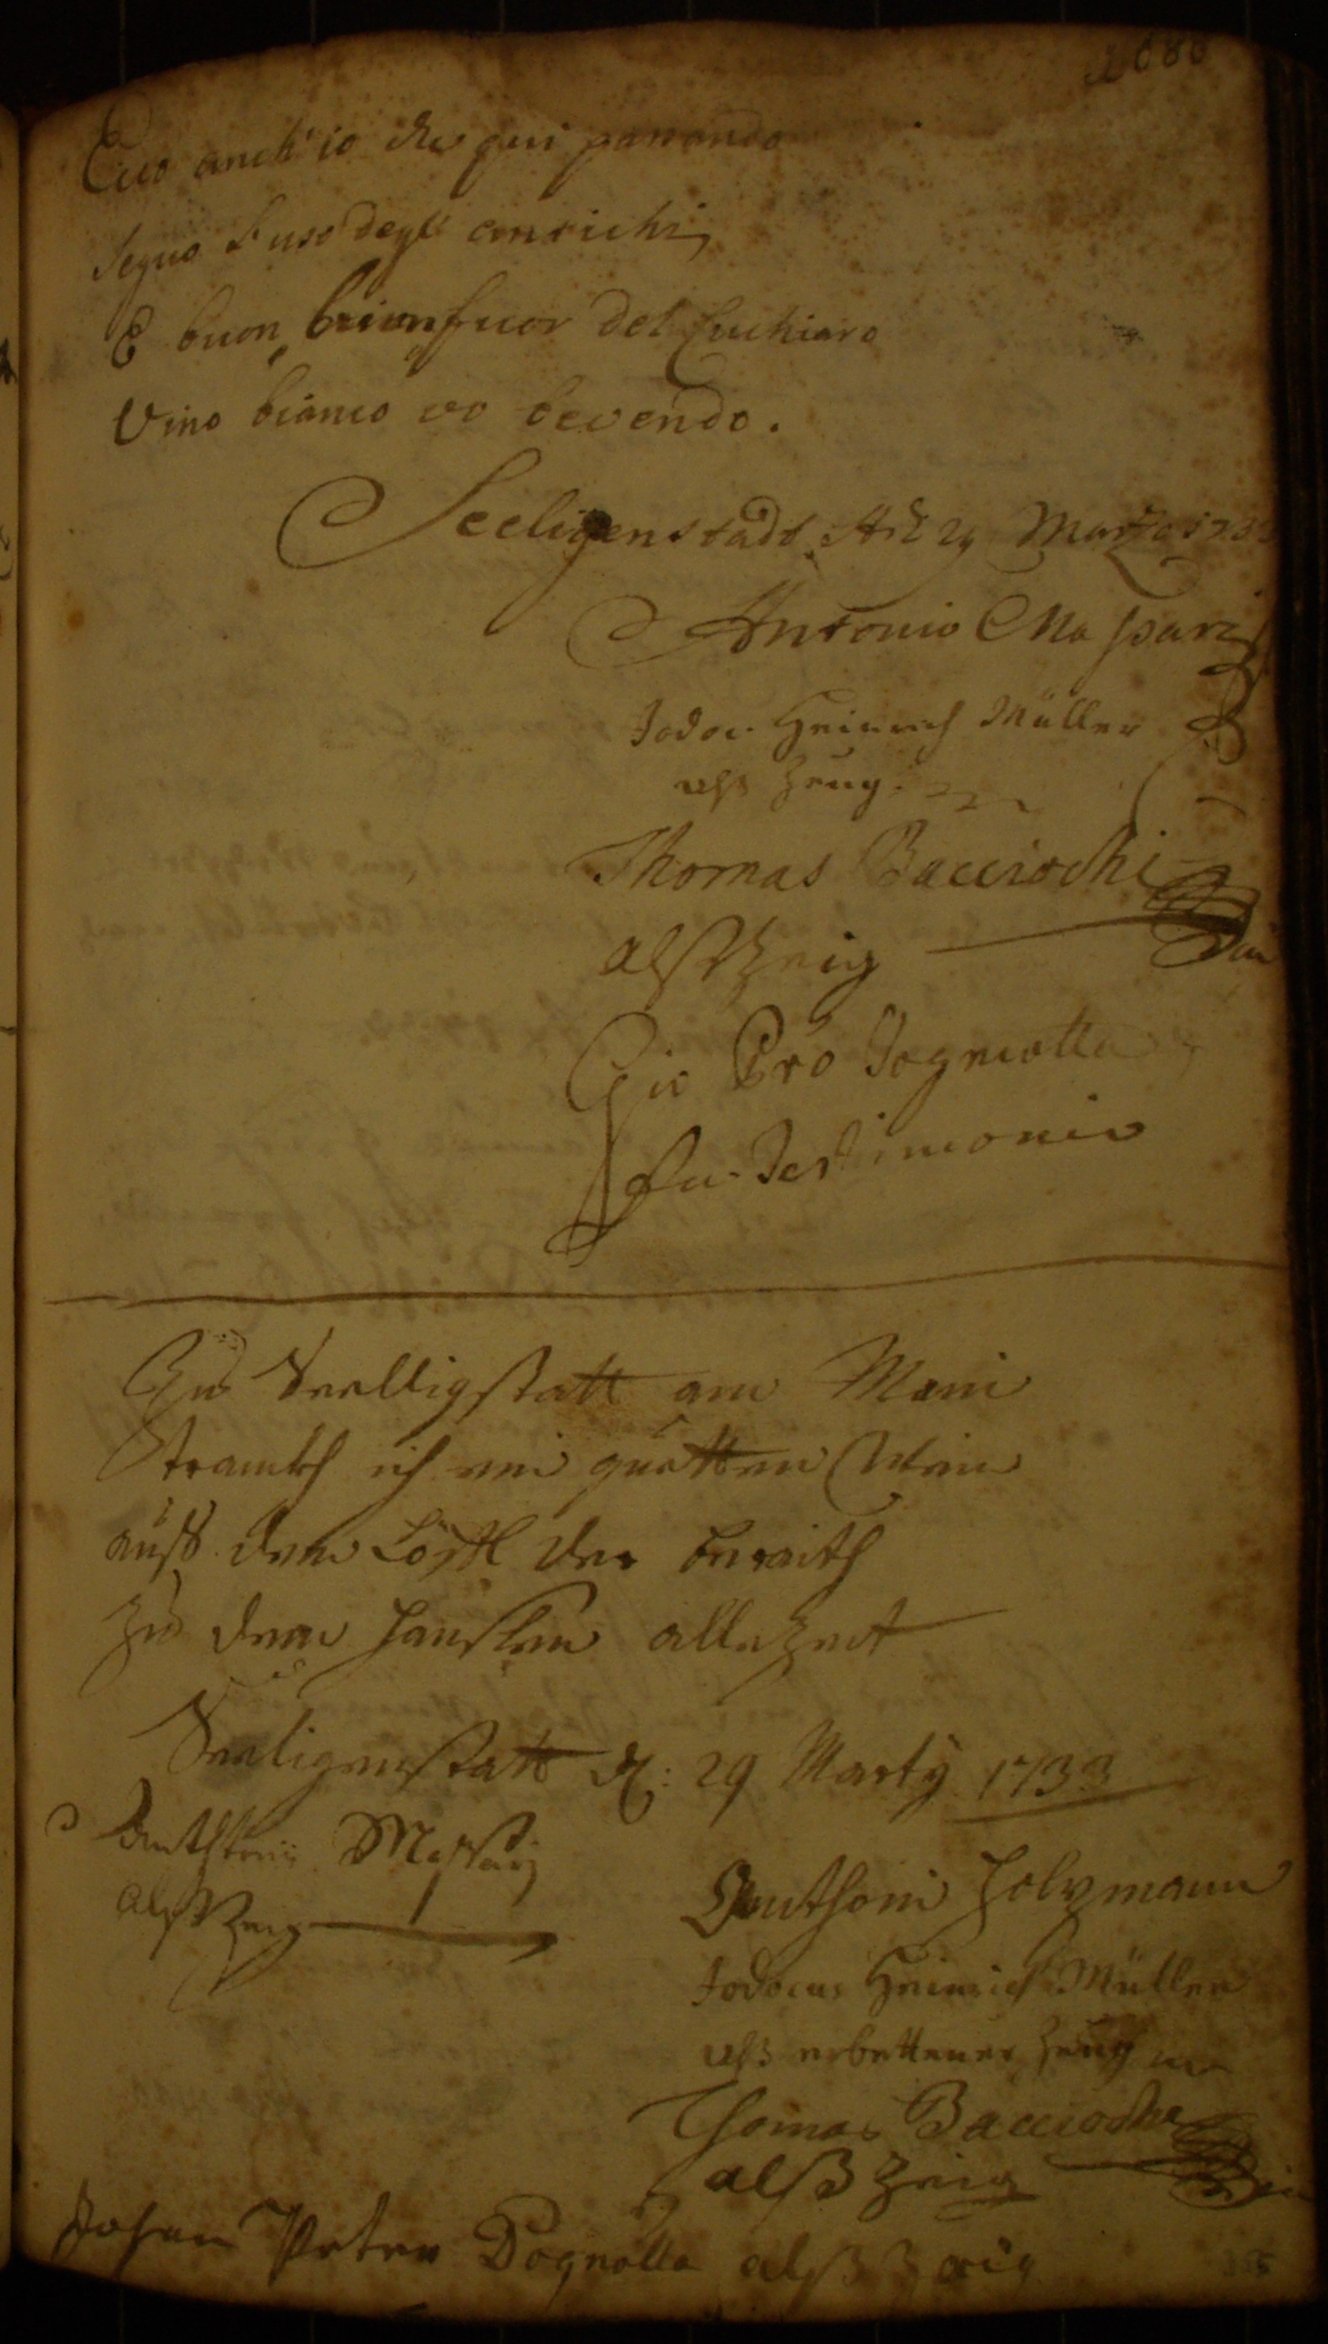 Ecco anch' io che qui passando
Seguo l'uso degli antichi,
E buon brionfuor del Cuchiaro
Vino bianco vo bevendo.
Seeligenstadt 29 Marzo 1733
Antonio Massari
Jodoc. Heinrich Müller
alß Zeug.
Thomas Bacciochi
alß Zeug
Gio Pro Togniotta
fu Testimonio
Zu Seelligstatt am Main
Tranckh ich ein gutten Wein
auß dem Löffl der bereith
Zu dem hanslen allezeit
Seeligenstatt d: 29 Marty 1733
Anthoni Massarj
alß Zeug
Anthoni Holzmann
Jodocus Heinrich Müller
alß erbettener Zeug
Thomas Bacciochi
alß Zeig
Johan Peter Dognolla alß Zeig